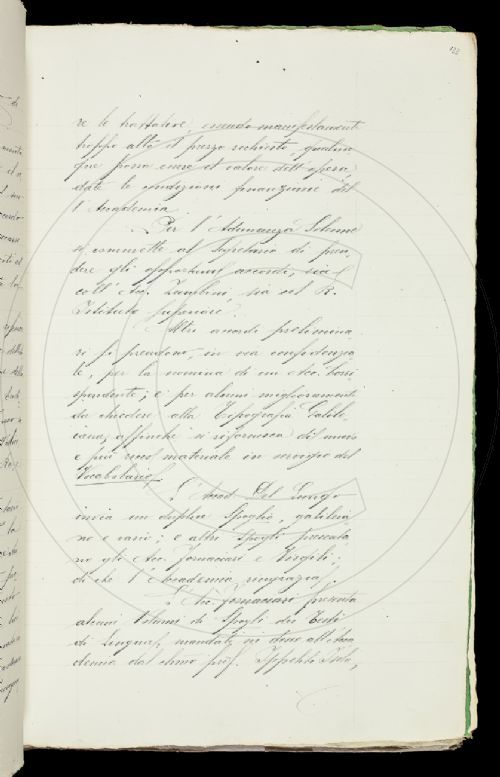 122
re le trattative, essendo manifestamente
troppo alto il prezzo richiesto, qualun
que possa essere il valore dell'opera,
date le condizioni finanziarie del
l'Accademia.
Per l'Adunanza Solenne
si commette al Segretario di pren
dere gli opportuni accordi, sia
coll'Acc. Zumbini, sia col R.
Istituto Superiore.
Altri accordi prelimina
ri si prendono, in via confidenzia
le, per la nomina di un Acc. Corri
spondente; e per alcuni miglioramenti
da chiedere alla Tipografia Galile
iana, affinché si rifornisca di nuovo
e più ricco materiale in servigio del
Vocabolario.
L'Accad. Del Lungo
invia un duplice Spoglio, galileia
no e vario; e altri Spogli presenta
no gli Acc. Fornaciari e Tortoli;
di che l'Accademia ringrazia.
L'Acc. Fornaciari presenta
alcuni Volumi di Spogli dei Testi
di Lingua, mandati in dono all'Acca
demia dal chmo prof. Ippolito Isola,